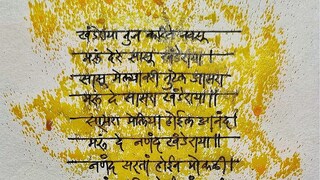 खंडेराया तुज करिते नवसू
मरू देरे सासू खंडेराया।
सासु मेल्यावरी तुटल आसरा
मरू दे सासरा खंडेराया॥
सासरा मेलिया होईल आनंद
मरू दे नणंद खंडेराया॥
नणंद सरतां होईन मोकळी